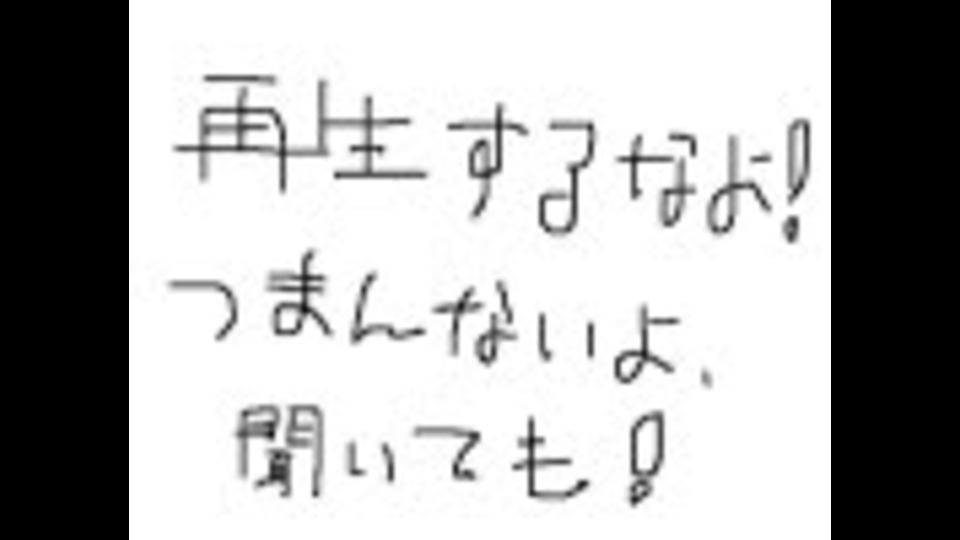 再生するなよ!
つまんないよ、
聞いても!